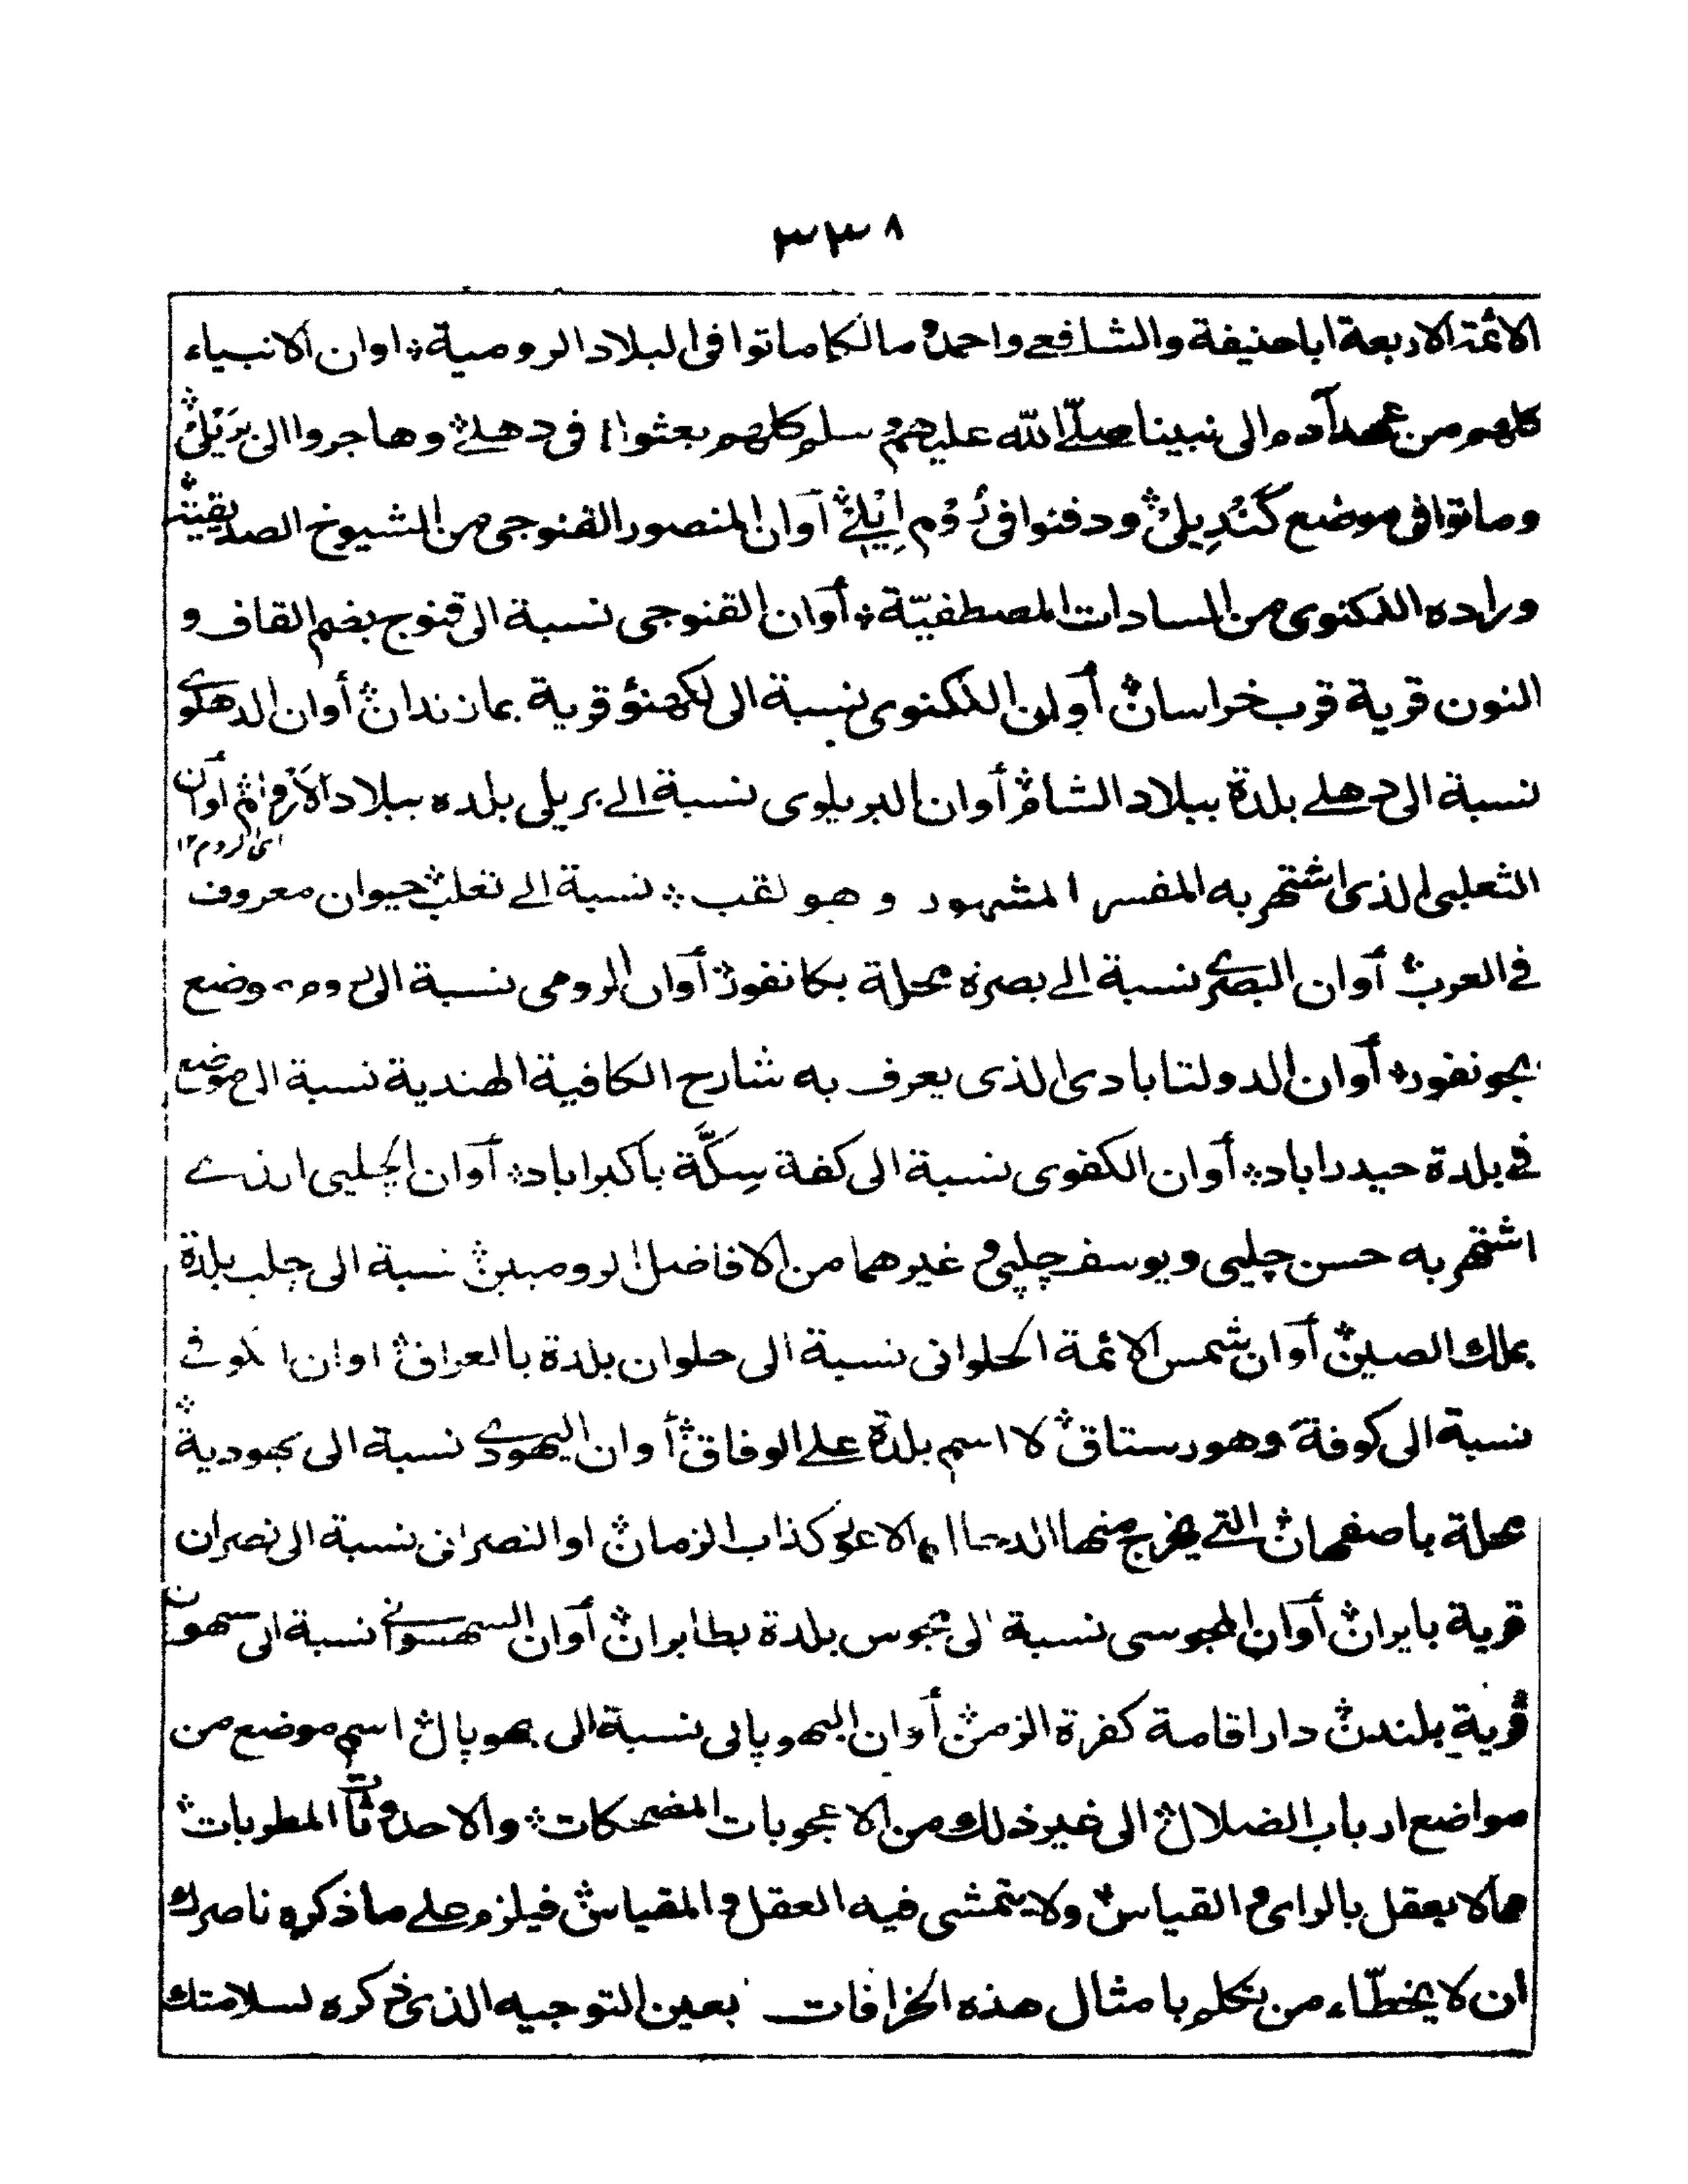 ٣٣٨
الائمة الاربعة اباحنيفة والشافعے واحمد ومالكا ماتوا فى البلاد الرومية ۞ اوان الانبياء
كلهم من عهد آدم الى نبينا صلّى الله عليهم وسلم كلهم بعثوا فى دهلے ۞ وهاجروا الى بَرَيْلى ۞
وماتوا فى موضع كَنْدِيلى ۞ ودفنوا فى رُوْم اِيْلِىْ ۞ آوان المنصور القنوجى من الشيوخ الصديقية ۞
ورلده اللكنوى من السادات المصطفيّة ۞ أوان القنوجى نسبة الى قنوج بضم القاف و
النون قرية قرب خراسان ۞ أوان اللكنوى نسبة الى لكهنؤ قرية بمازندان ۞ أوان الدهلوے
نسبة الى دهلے بلدة ببلاد الشام ۞ أوان البريلوى نسبة الے بريلى بلده ببلاد الأروام ۞ أوان
اى الروم ١٢
الثعلبى الذى اشتهر به المفسر المشهور وهو لقب ۞ نسبة الے ثعلب ۞ حيوان معروف
فے العرب ۞ أوان البصرے نسبة الے بصره محلة بكانفور ۞ أوان الرومى نسبة الى روم موضع
بجونفور ۞ أوان الدولتابادى الذى يعرف به شارح الكافية الهندية نسبة الى موضع
فے بلدة حيدراباد ۞ أوان الكفوى نسبة الى كفة سِكَّة باكبراباد ۞ أوان الچلپى الذے
اشتهر به حسن چلپى ويوسف چلپى وغيرهما من الافاضل الرومين ۞ نسبة الى جلب بلدة
بملك الصين ۞ أوان شمس الائمة الحلوانى نسبة الى حلوان بلدة بالعراق ۞ اوان الكوفے
نسبة الى كوفة وهو رستاق ۞ لا اسم بلدة علے الوفاق ۞ أوان اليهودے نسبة الى يهودية ۞
محلة باصفهان ۞ التے يخرج منها الدجال الاعور كذاب الزمان ۞ او النصرانى نسبة الى نصران
قرية بايران ۞ أوان المجوسى نسبة الى مجوس بلدة بطابران ۞ أوان السهسوانے نسبة الى سهسون
قرية بلندن ۞ دار اقامة كفرة الزمن ۞ أوان البهوپالى نسبة الى بهوپال ۞ اسم موضع من
مواضع ارباب الضلال ۞ الى غير ذلك من الاعجوبات المضحكات ۞ والاحدوثات المطربات ۞
مما لا يعقل بالراى والقياس ۞ ولا يتمشى فيه العقل والمقياس ۞ فيلزم علے ما ذكره ناصرك
ان لا يخطّاء من تكلم بامثال هذه الخرافات بعين التوجيه الذى ذكره لسلامتك